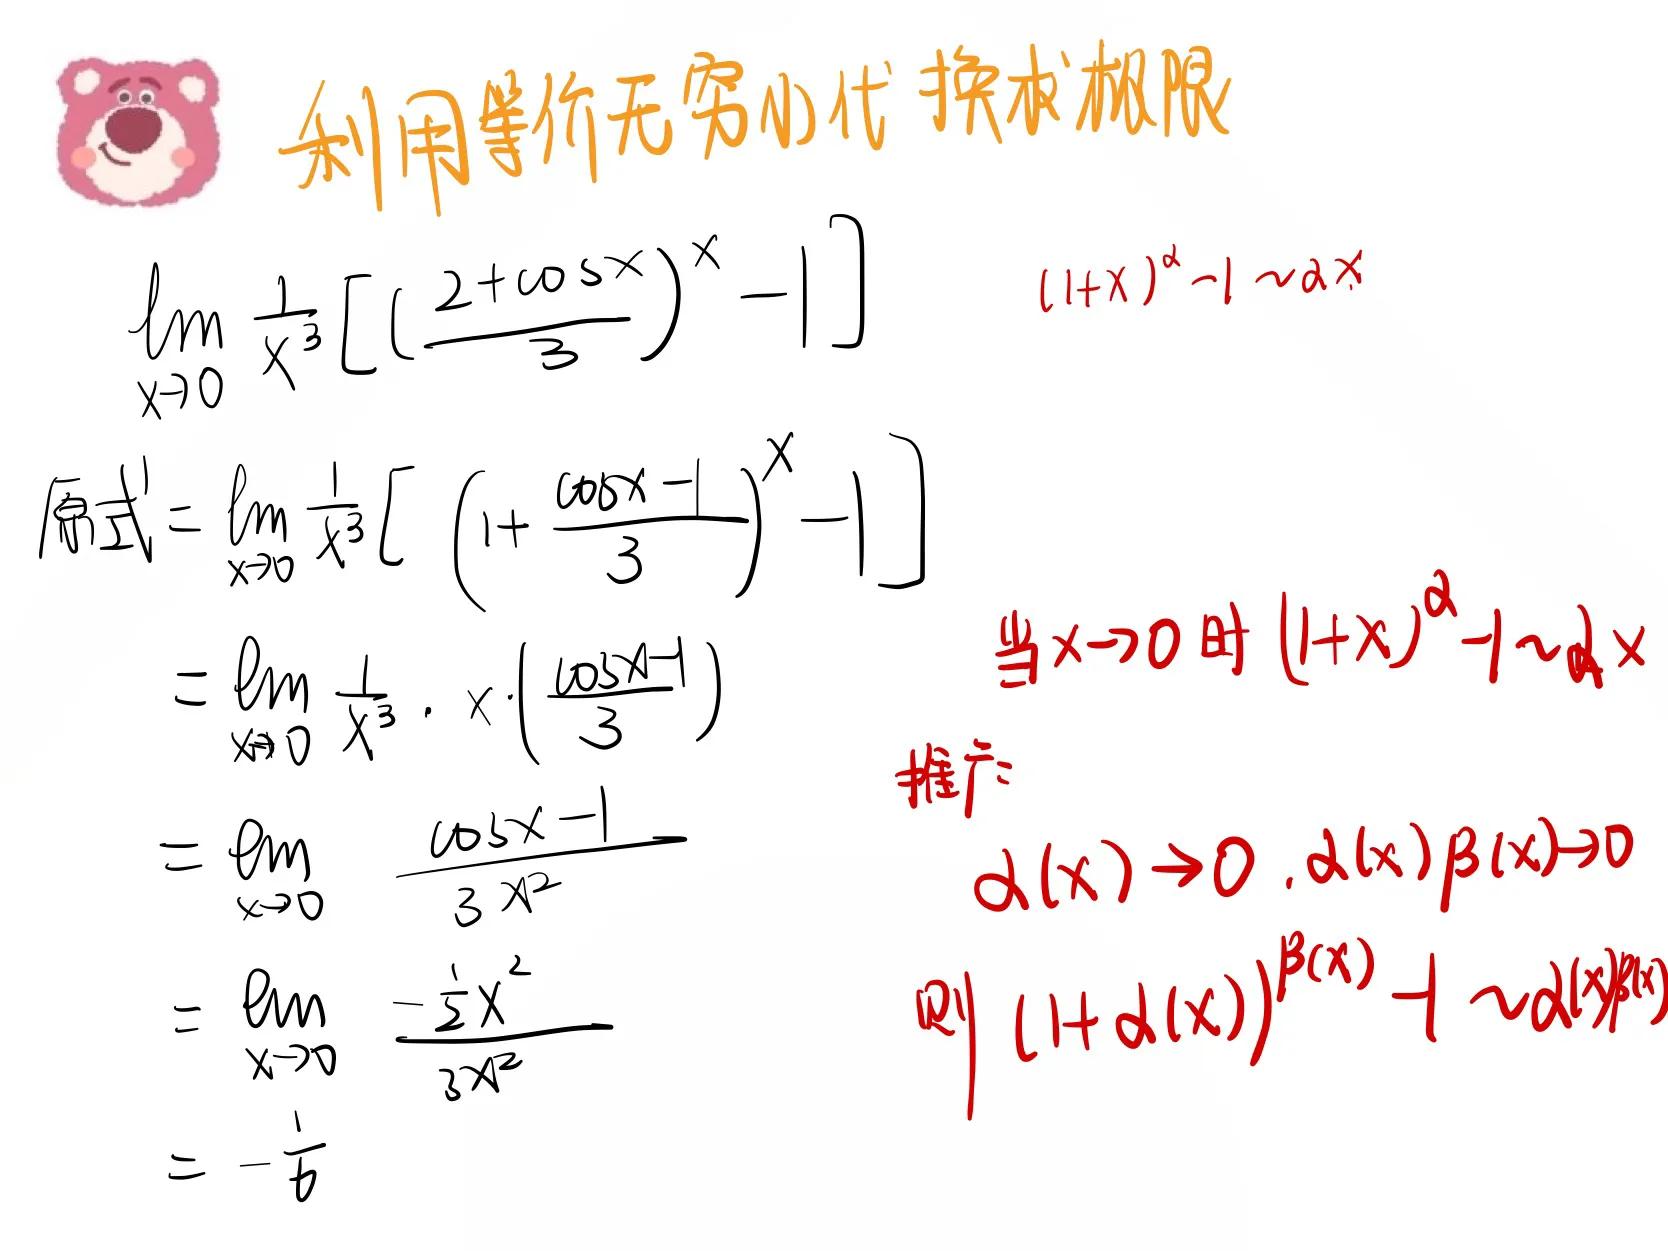 利用等价无穷小代换求极限
lim x→0 1/x³ [((2+cosx)/3)^x −1]
(1+x)^α −1 ~ αx
原式 = lim x→0 1/x³ [(1+ (cosx−1)/3)^x −1]
= lim x→0 1/x³ · x · ((cosx−1)/3)
= lim x→0 (cosx−1)/(3x²)
= lim x→0 (−1/2 x²)/(3x²)
= −1/6
当x→0时 (1+x)^α −1 ~ αx
推广:
α(x)→0 . α(x)β(x)→0
则 (1+α(x))^β(x) −1 ~ α(x)β(x)